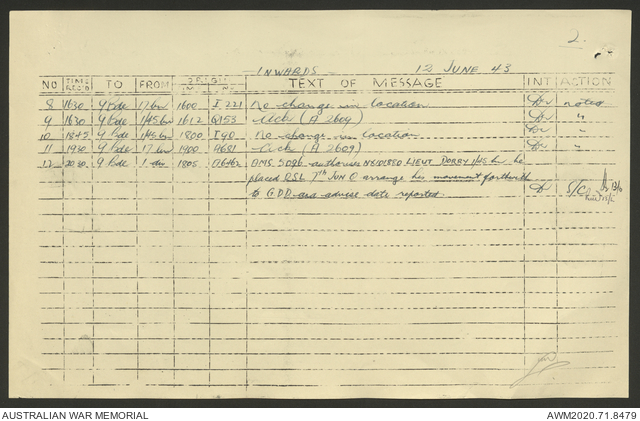 2.
INWARDS 12 JUNE 43
NO TIME REC'D TO FROM ORIGIN TEXT OF MESSAGE INT ACTION
8 1630 4 Bde 17 bn 1600 I 221 No change in location noted
9 1630 4 Bde 1612 G153 (A 2609) "
10 1845 4 Bde 1800 I40 No change in location "
11 1930 4 Bde 17 bn 1900 A681 (A 2609) "
12 2030 4 Bde 1 div 1805 5026 authorises LIEUT DORBY be
placed RSL 7th JUN arrange his movement forthwith
to GDD and advise date reported. S/C
AUSTRALIAN WAR MEMORIAL AWM2020.71.8479